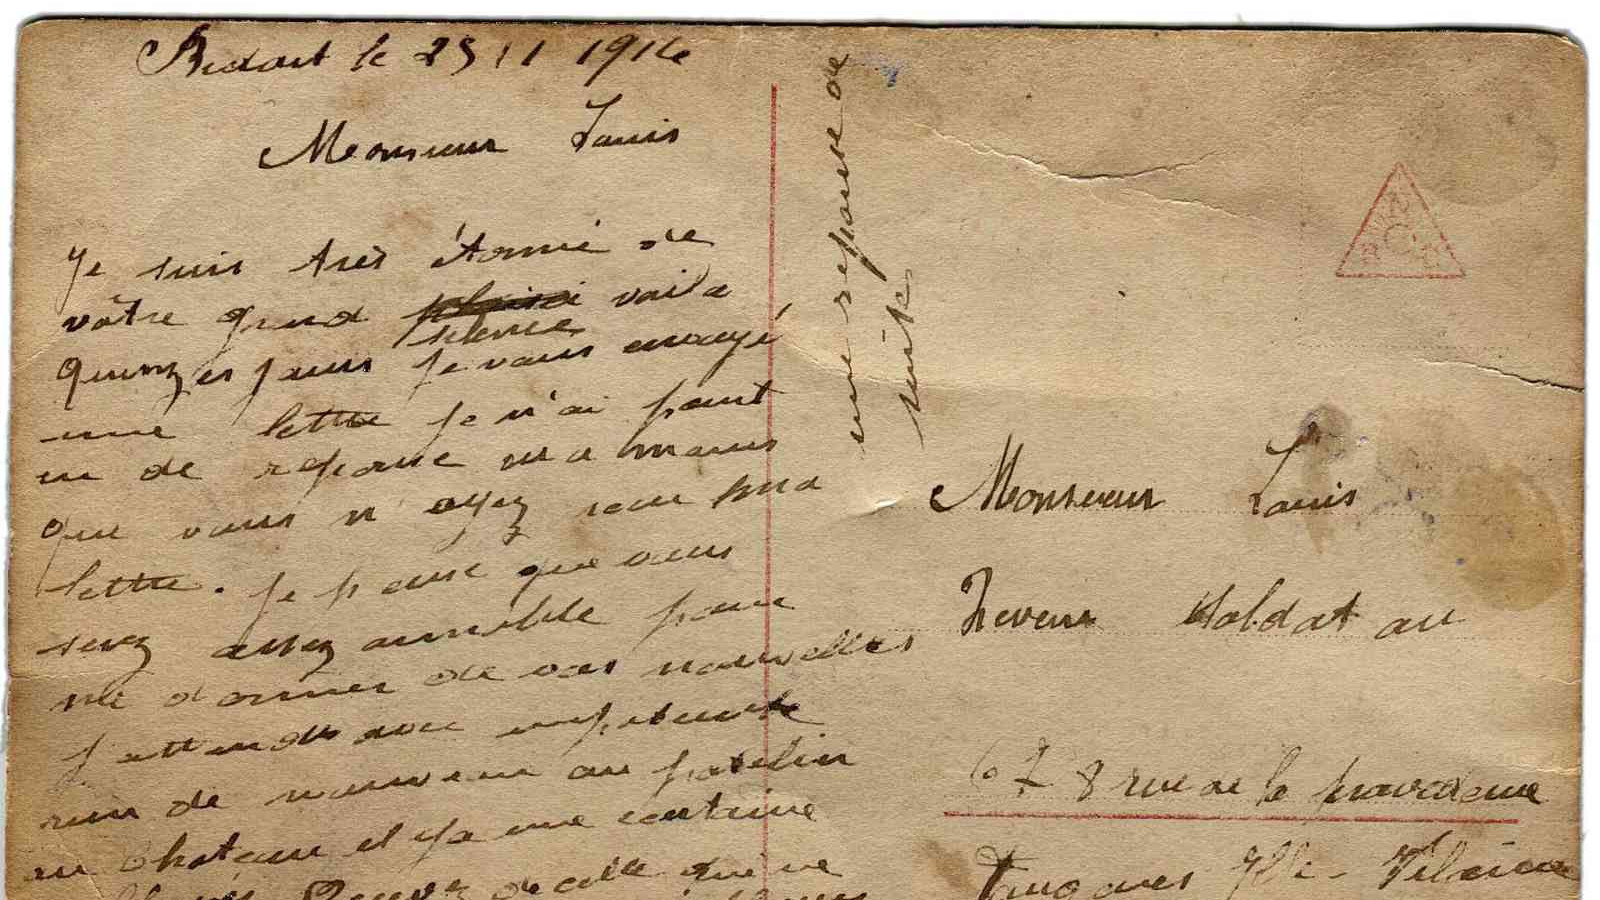 le 25 11 1914
Monsieur Louis
Je suis très étonné de
vôtre grand silence voila
quinzes jours je vous envoyé
une lettre je n'ai point
eu de reponse
que vous n'ayez reçu ma
lettre. Je pense que vous
serez assez aimable pour
me donner de vos nouvelles
j'attends avec
rien de nouveau au patelin
au Chateau il y a une
de celle qui ne
une reponse de
suite
Monsieur Louis
Soldat au
67 8 rue de la providence
Ille-Vilaine